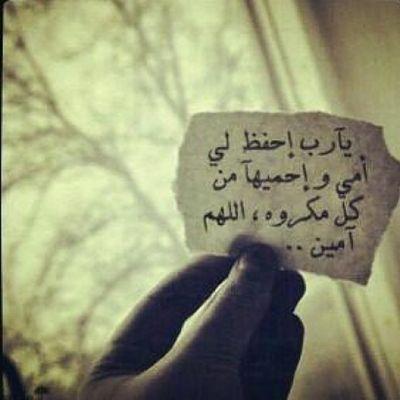 يآرب إحفظ لي
أمي و إحميهآ من
كل مكروه ، اللهم
آمين ..